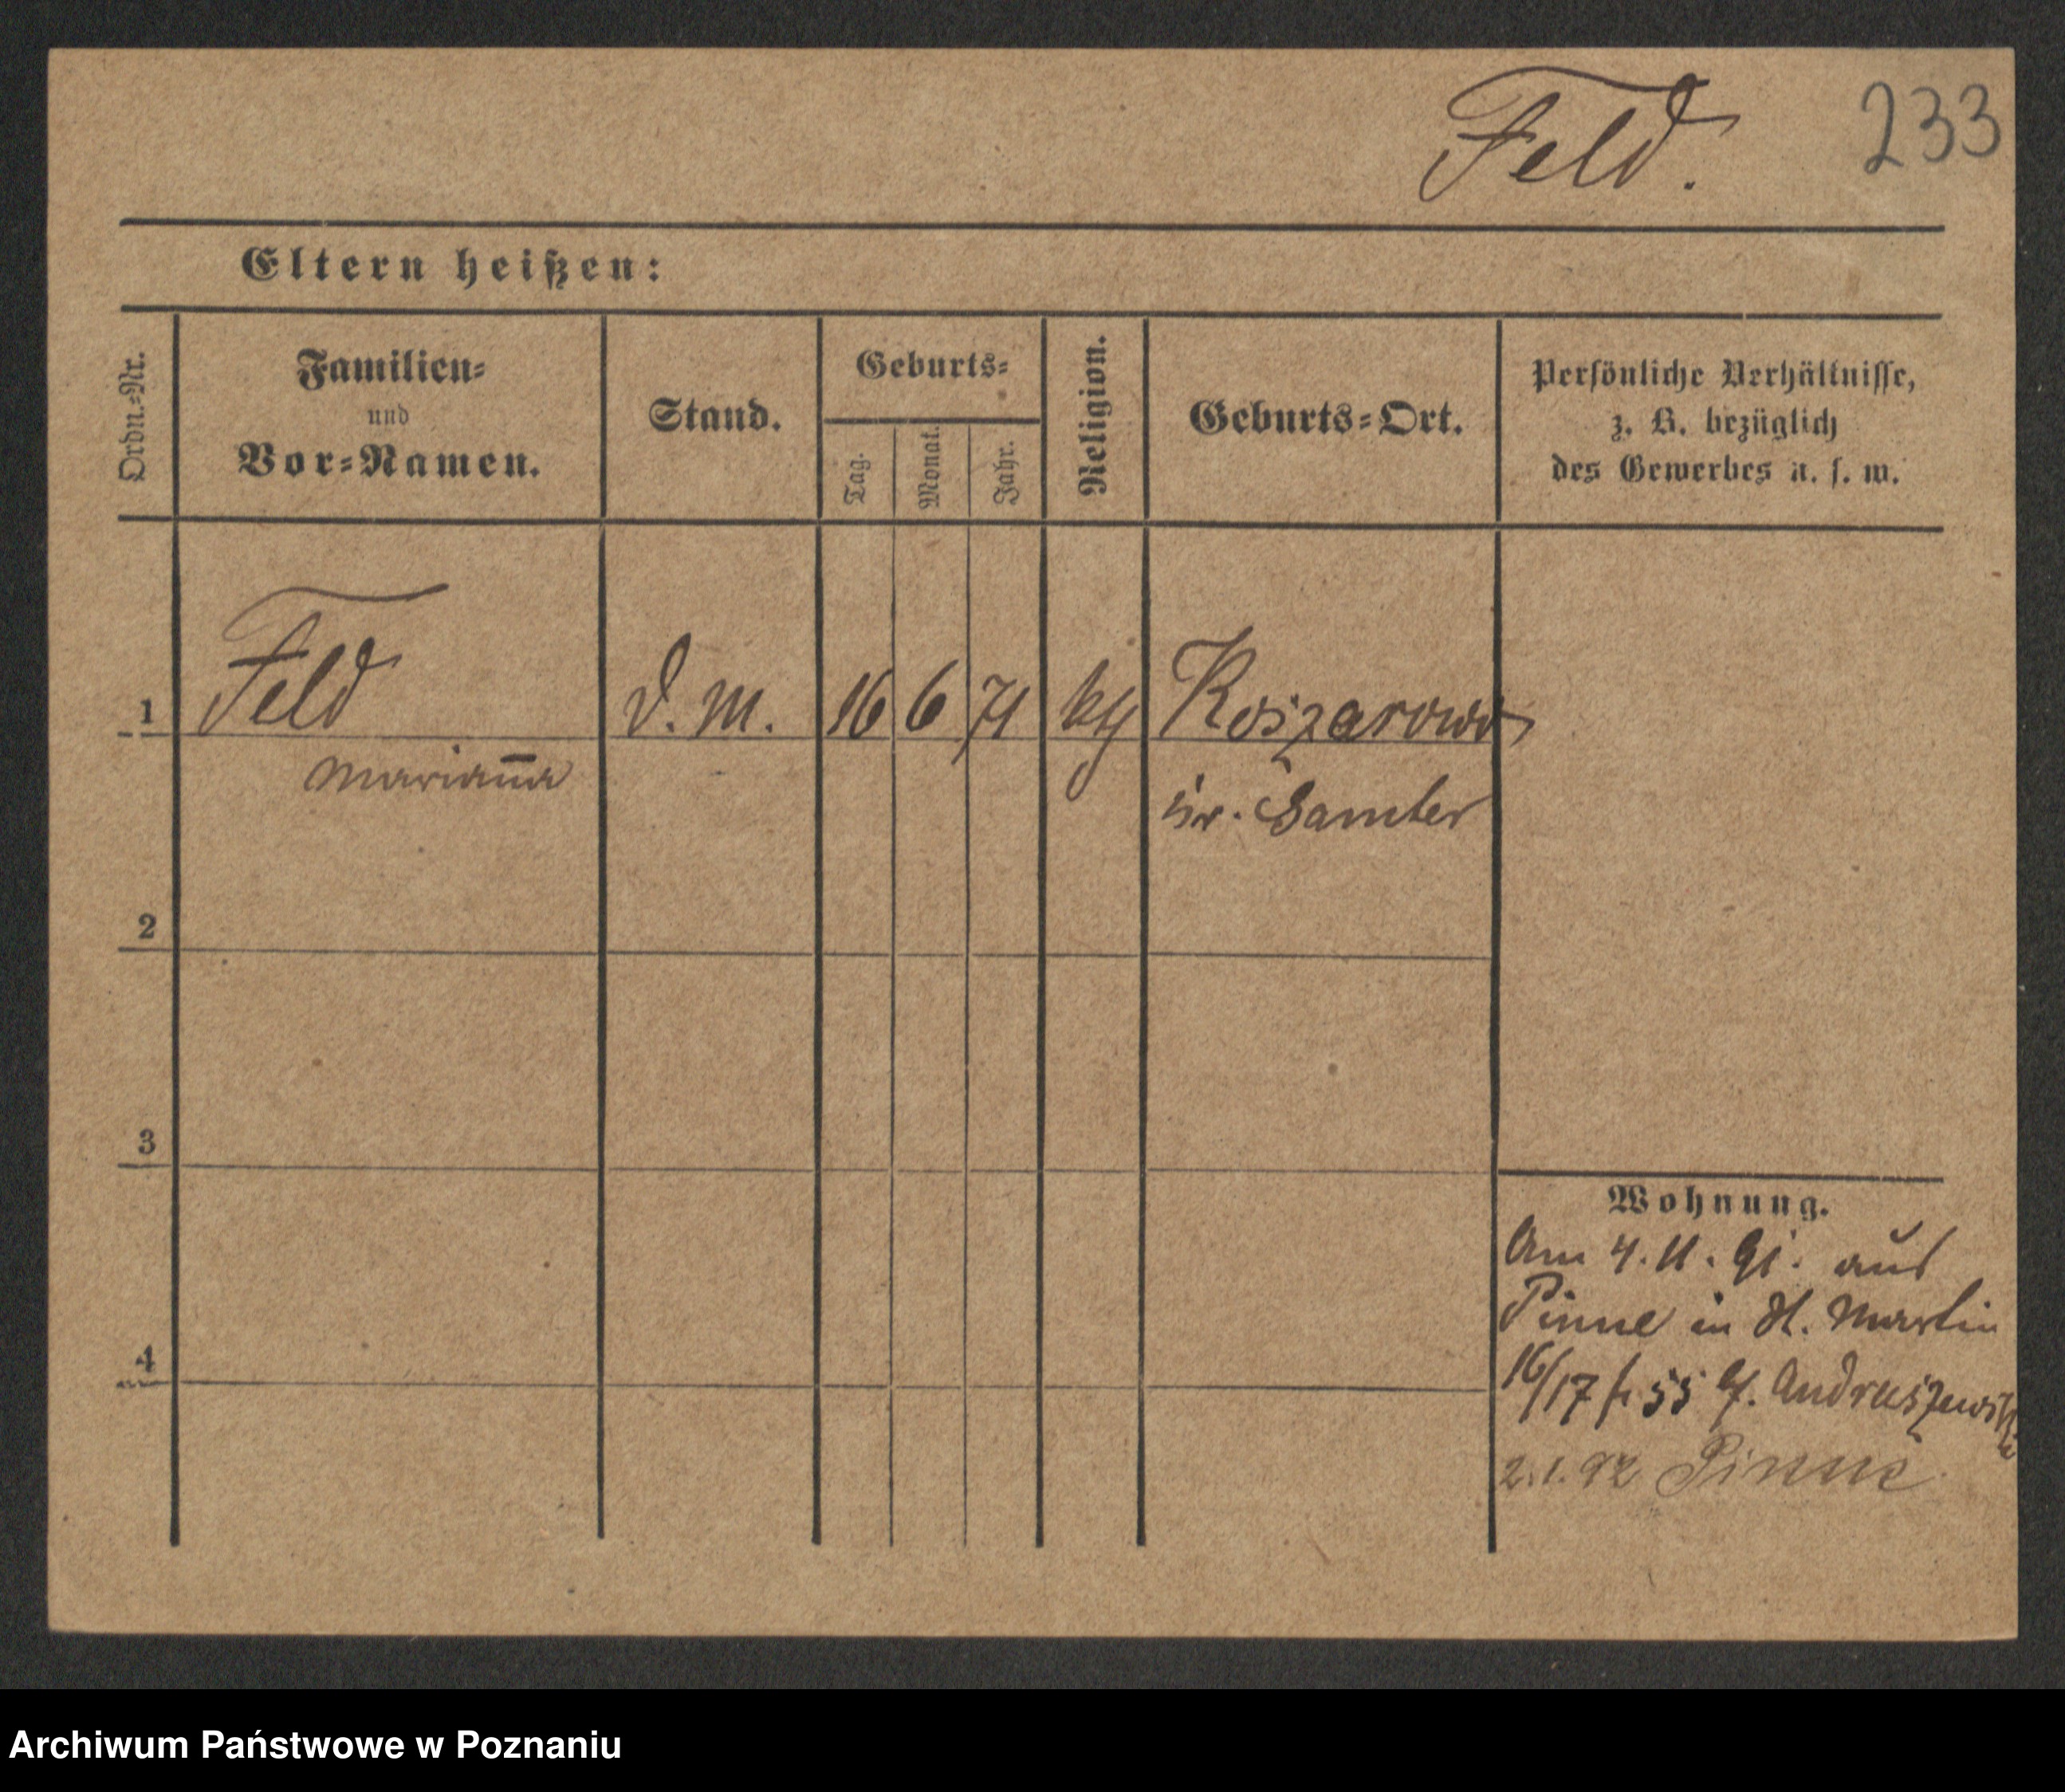 Feld. 233
Eltern heißen:
Ordn.-Nr.
Familien-
und
Vor-Namen.
Stand.
Geburts-
Tag.
Monat.
Jahr.
Religion.
Geburts-Ort.
Persönliche Verhältnisse,
z. B. bezüglich
des Gewerbes u. s. w.
1 Feld D. M. 16 6 71 Koszarowo
Marian̅a
Kr. Samter
2
3
4
Wohnung.
Am 4. 11. 91. aus
Pinne in St. Martin
16/17 55 Andruszewski
2. 1. 92 Pinne
Archiwum Państwowe w Poznaniu